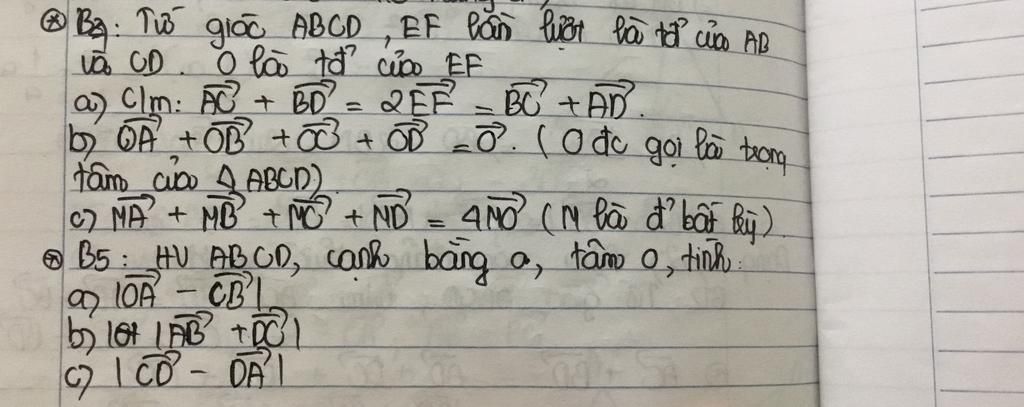 ⊛ B2: Tứ giác ABCD, EF lần lượt là tđ' của AB
và CD. O là tđ' của EF
a) C/m: $\overrightarrow{AC}$ + $\overrightarrow{BD}$ = 2$\overrightarrow{EF}$ = $\overrightarrow{BC}$ + $\overrightarrow{AD}$.
b) $\overrightarrow{OA}$ + $\overrightarrow{OB}$ + $\overrightarrow{OC}$ + $\overrightarrow{OD}$ = $\overrightarrow{O}$. (O đc gọi là trọng
tâm của Δ ABCD)
c) $\overrightarrow{MA}$ + $\overrightarrow{MB}$ + $\overrightarrow{MC}$ + $\overrightarrow{MD}$ = 4$\overrightarrow{MO}$ (M là đ' bất kỳ).
⊛ B5: HV ABCD, cạnh bằng a, tâm O, tính:
a) |$\overrightarrow{OA}$ - $\overrightarrow{CB}$|
b) |$\overrightarrow{AB}$ + $\overrightarrow{DC}$|
c) |$\overrightarrow{CD}$ - $\overrightarrow{DA}$|